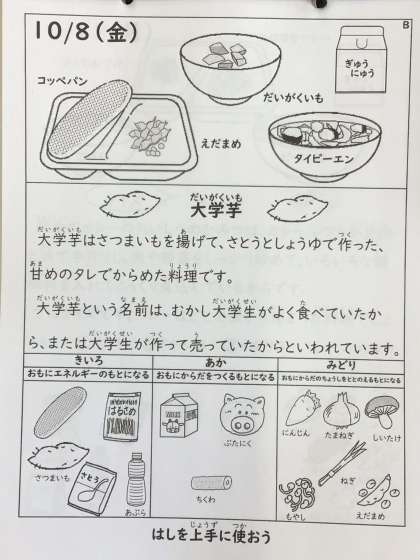 10/8(金)
B
コッペパン
だいがくいも
ぎゅう
にゅう
えだまめ
タイピーエン
だいがくいも
大学芋
だいがくいも あ つく
大学芋はさつまいもを揚げて、さとうとしょうゆで作った、
あま りょうり
甘めのタレでからめた料理です。
だいがくいも なまえ だいがくせい た
大学芋という名前は、むかし大学生がよく食べていたか
だいがくせい つく う
ら、または大学生が作って売っていたからといわれています。
きいろ
おもにエネルギーのもとになる
はるさめ
さつまいも
さとう
あぶら
あか
おもにからだをつくるもとになる
ぶたにく
ちくわ
みどり
おもにからだのちょうしをととのえるもとになる
にんじん
たまねぎ
しいたけ
ねぎ
もやし
えだまめ
じょうず つか
はしを上手に使おう